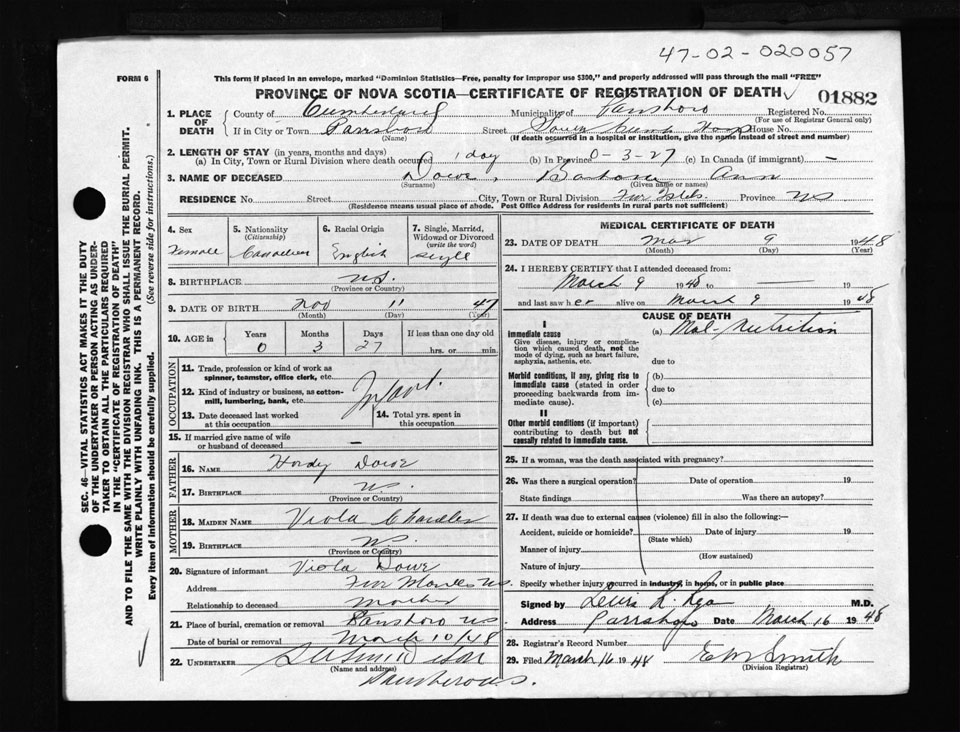 47-02-020057
FORM 6
This form if placed in an envelope, marked "Dominion Statistics—Free, penalty for improper use $300," and properly addressed will pass through the mail "FREE"
PROVINCE OF NOVA SCOTIA—CERTIFICATE OF REGISTRATION OF DEATH
01882
1. PLACE OF DEATH
County of Cumberland Municipality of Parrsboro Registered No.
(For use of Registrar General only)
If in City or Town Parrsboro Street House No.
(Name) (If death occurred in a hospital or institution, give the name instead of street and number)
2. LENGTH OF STAY (in years, months and days)
(a) In City, Town or Rural Division where death occurred 1 day (b) In Province 0-3-27 (c) In Canada (if immigrant) —
3. NAME OF DECEASED Dowe, Barbara Ann
(Surname) (Given name or names)
RESIDENCE No. Street City, Town or Rural Division Five Isles. Province NS
(Residence means usual place of abode. Post Office Address for residents in rural parts not sufficient)
4. Sex 5. Nationality (Citizenship) 6. Racial Origin 7. Single, Married, Widowed or Divorced (write the word)
Female Canadian English Single
8. BIRTHPLACE NS.
(Province or Country)
9. DATE OF BIRTH Nov 11 47
(Month) (Day) (Year)
10. AGE in Years Months Days If less than one day old
0 3 27 hrs. or min.
OCCUPATION
11. Trade, profession or kind of work as spinner, teamster, office clerk, etc.
12. Kind of industry or business, as cotton-mill, lumbering, bank, etc.
Infant.
13. Date deceased last worked at this occupation
14. Total yrs. spent in this occupation
15. If married give name of wife or husband of deceased —
FATHER
16. NAME Dowe
17. BIRTHPLACE NS.
(Province or Country)
MOTHER
18. MAIDEN NAME Viola
19. BIRTHPLACE NS.
(Province or Country)
20. Signature of informant Viola Dowe
Address Five NS.
Relationship to deceased mother
21. Place of burial, cremation or removal Parrsboro NS
Date of burial or removal March 10/48
22. UNDERTAKER
(Name and address)
MEDICAL CERTIFICATE OF DEATH
23. DATE OF DEATH Mar 9 1948
(Month) (Day) (Year)
24. I HEREBY CERTIFY that I attended deceased from:
March 9 1948 to — 19
and last saw her alive on March 9 1948
CAUSE OF DEATH
I
Immediate cause
Give disease, injury or complication which caused death, not the mode of dying, such as heart failure, asphyxia, asthenia, etc.
(a) Mal-Nutrition
due to
Morbid conditions, if any, giving rise to immediate cause (stated in order proceeding backwards from immediate cause).
(b)
due to
(c)
II
Other morbid conditions (if important) contributing to death but not causally related to immediate cause.
25. If a woman, was the death associated with pregnancy?
26. Was there a surgical operation? Date of operation 19
State findings Was there an autopsy?
27. If death was due to external causes (violence) fill in also the following:—
Accident, suicide or homicide? Date of injury 19
(State which)
Manner of injury
(How sustained)
Nature of injury
Specify whether injury occurred in industry, in home, or in public place
Signed by M.D.
Address Parrsboro Date March 16 1948
28. Registrar's Record Number
29. Filed March 16 1948 E M Smith
(Division Registrar)
SEC. 46—VITAL STATISTICS ACT MAKES IT THE DUTY
OF THE UNDERTAKER OR PERSON ACTING AS UNDER-
TAKER TO OBTAIN ALL THE PARTICULARS REQUIRED
IN THE "CERTIFICATE OF REGISTRATION OF DEATH"
AND TO FILE THE SAME WITH THE DIVISION REGISTRAR WHO SHALL ISSUE THE BURIAL PERMIT.
WRITE PLAINLY WITH UNFADING INK. THIS IS A PERMANENT RECORD.
Every item of information should be carefully supplied. (See reverse side for instructions.)